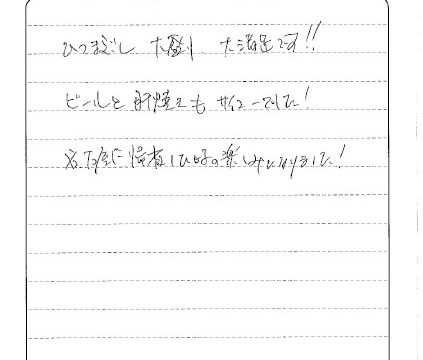 ひつまぶし 大盛り 大満足です!!
ビールと肝焼きもサイコーでした!
名古屋に帰省した時の楽しみになりました!